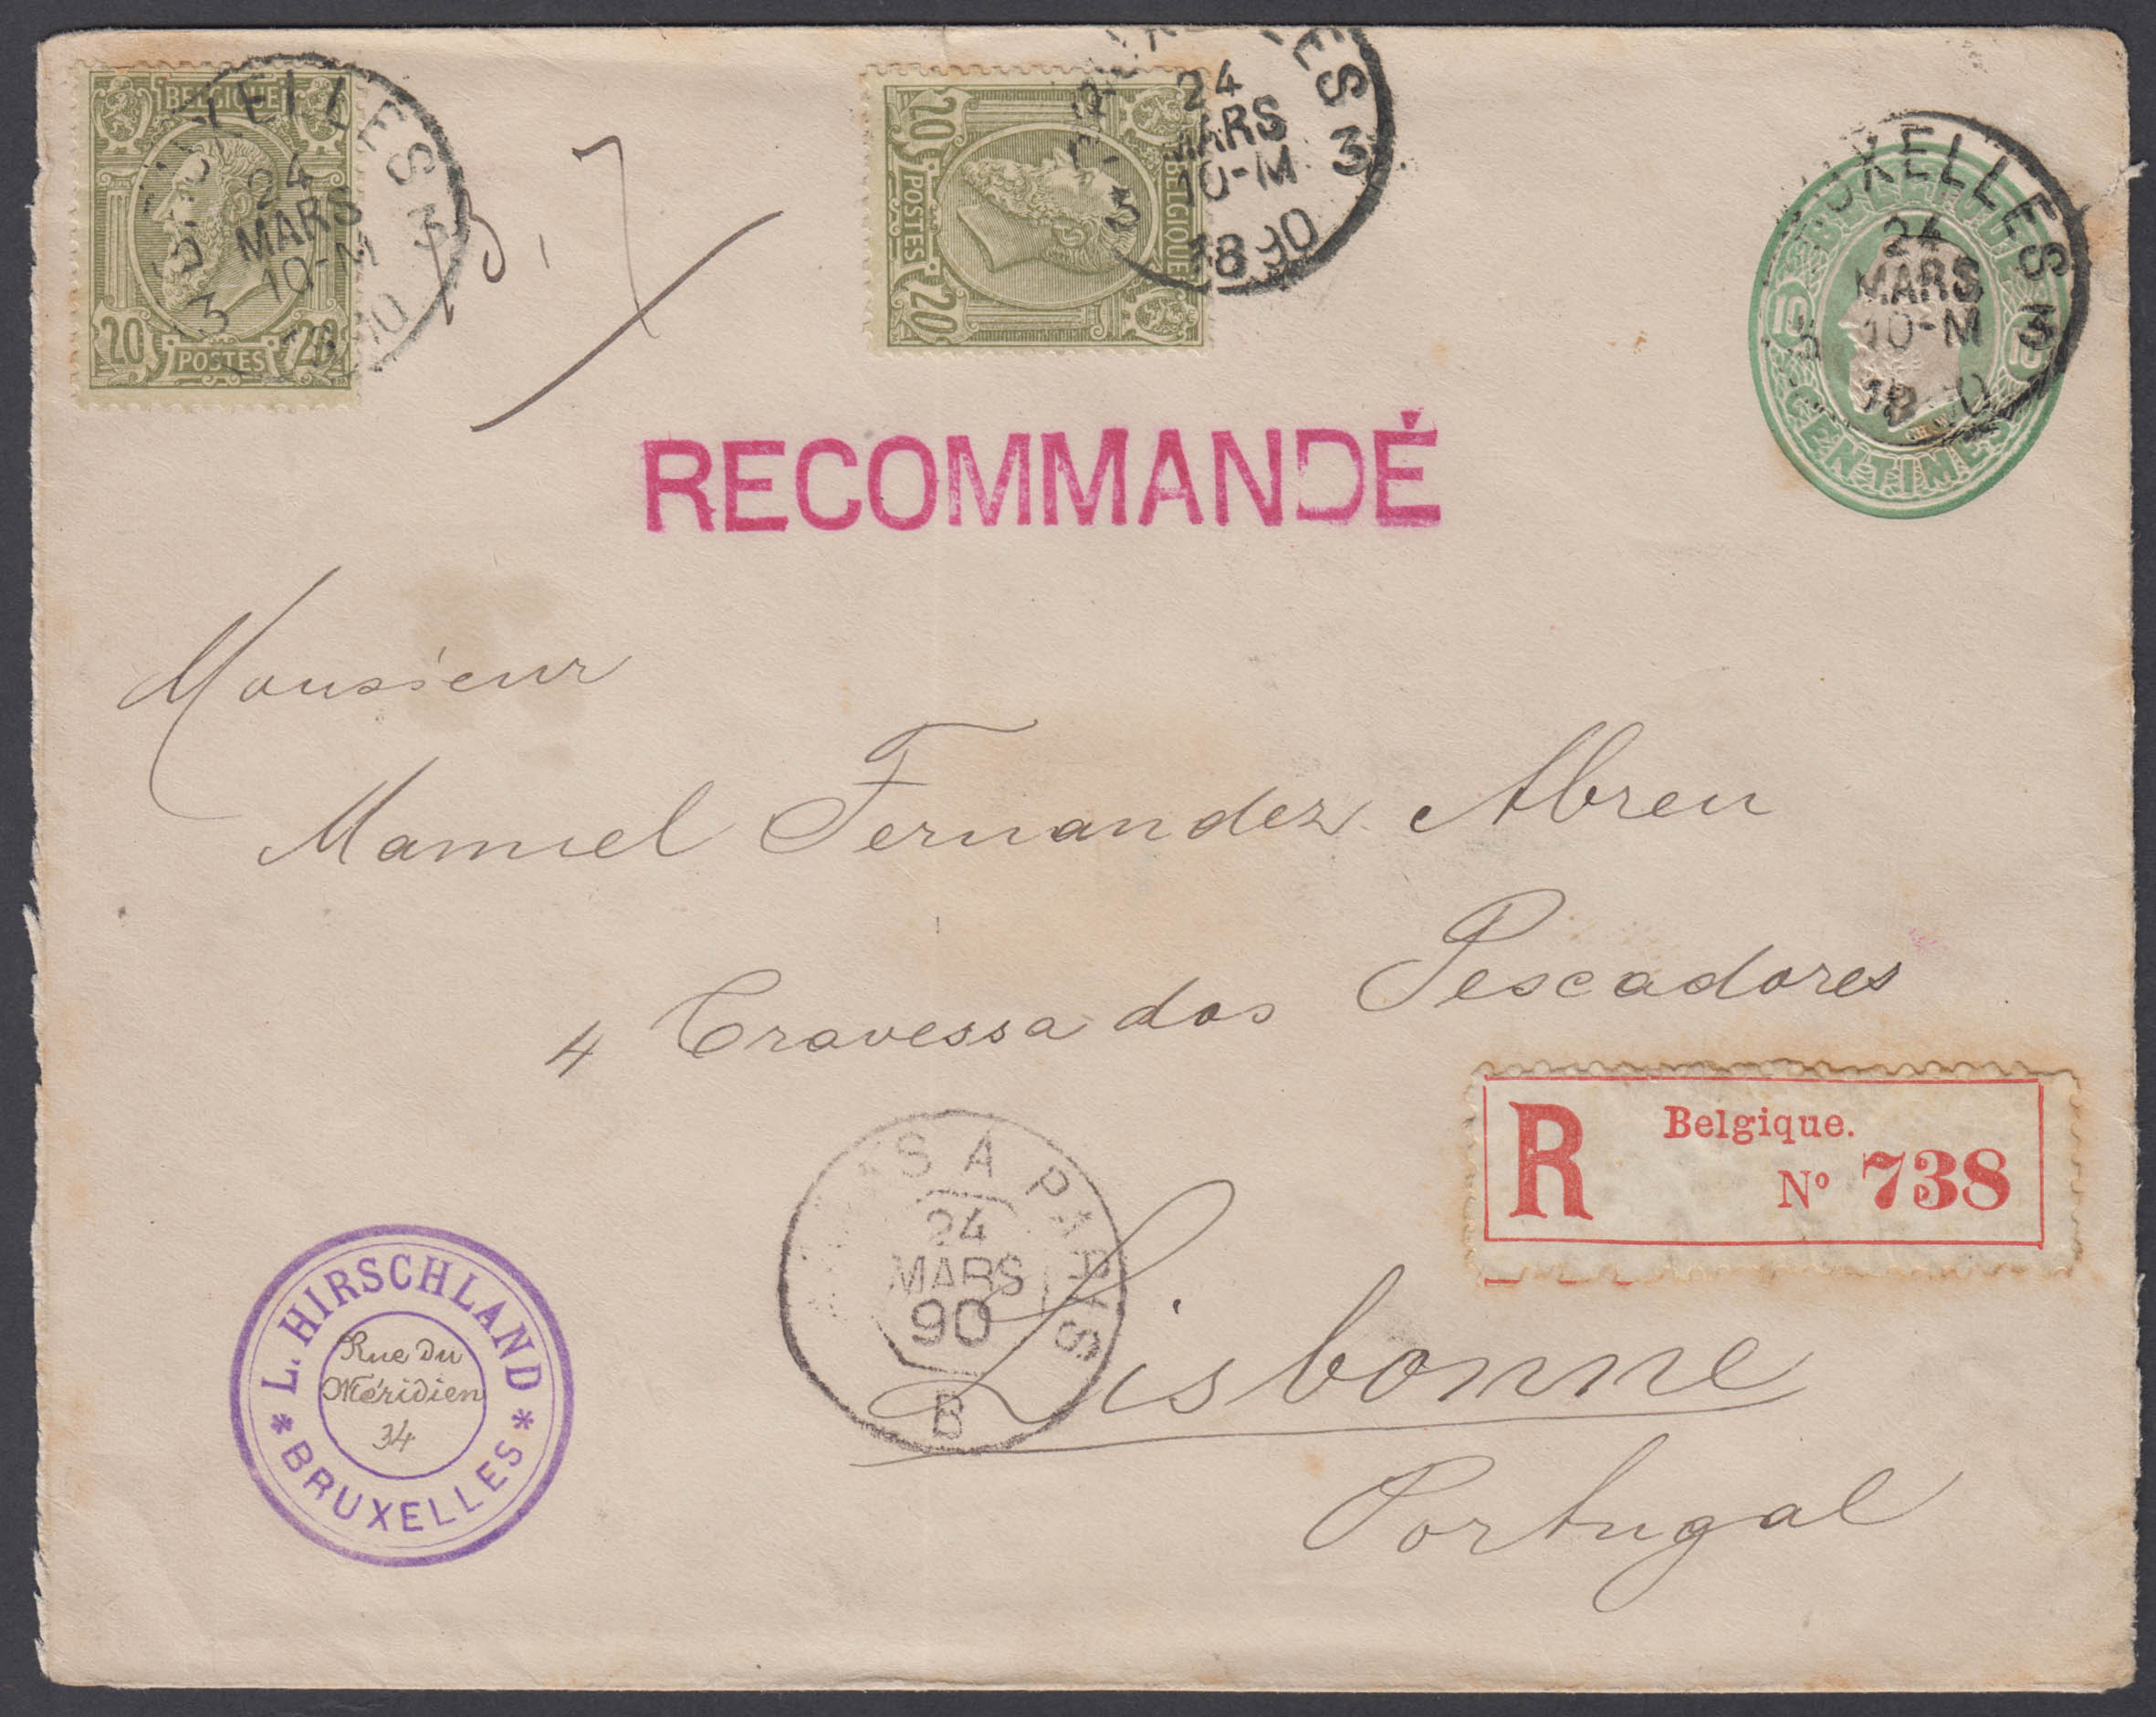 BELGIQUE
20 POSTES 20
BRUXELLES 3
24
MARS
10-M
1890
BELGIQUE
20 POSTES 20
24
MARS
10-M
1890
3
BRUXELLES 3
24
MARS
10-M
CENTIMES
RECOMMANDÉ
Monsieur
Manuel Fernandez Abreu
4 Travessa dos Pescadores
R Belgique.
Nº 738
A PARIS
24
MARS
90
B
Lisbonne
Portugal
L. HIRSCHLAND
Rue du
Méridien
34
* BRUXELLES *